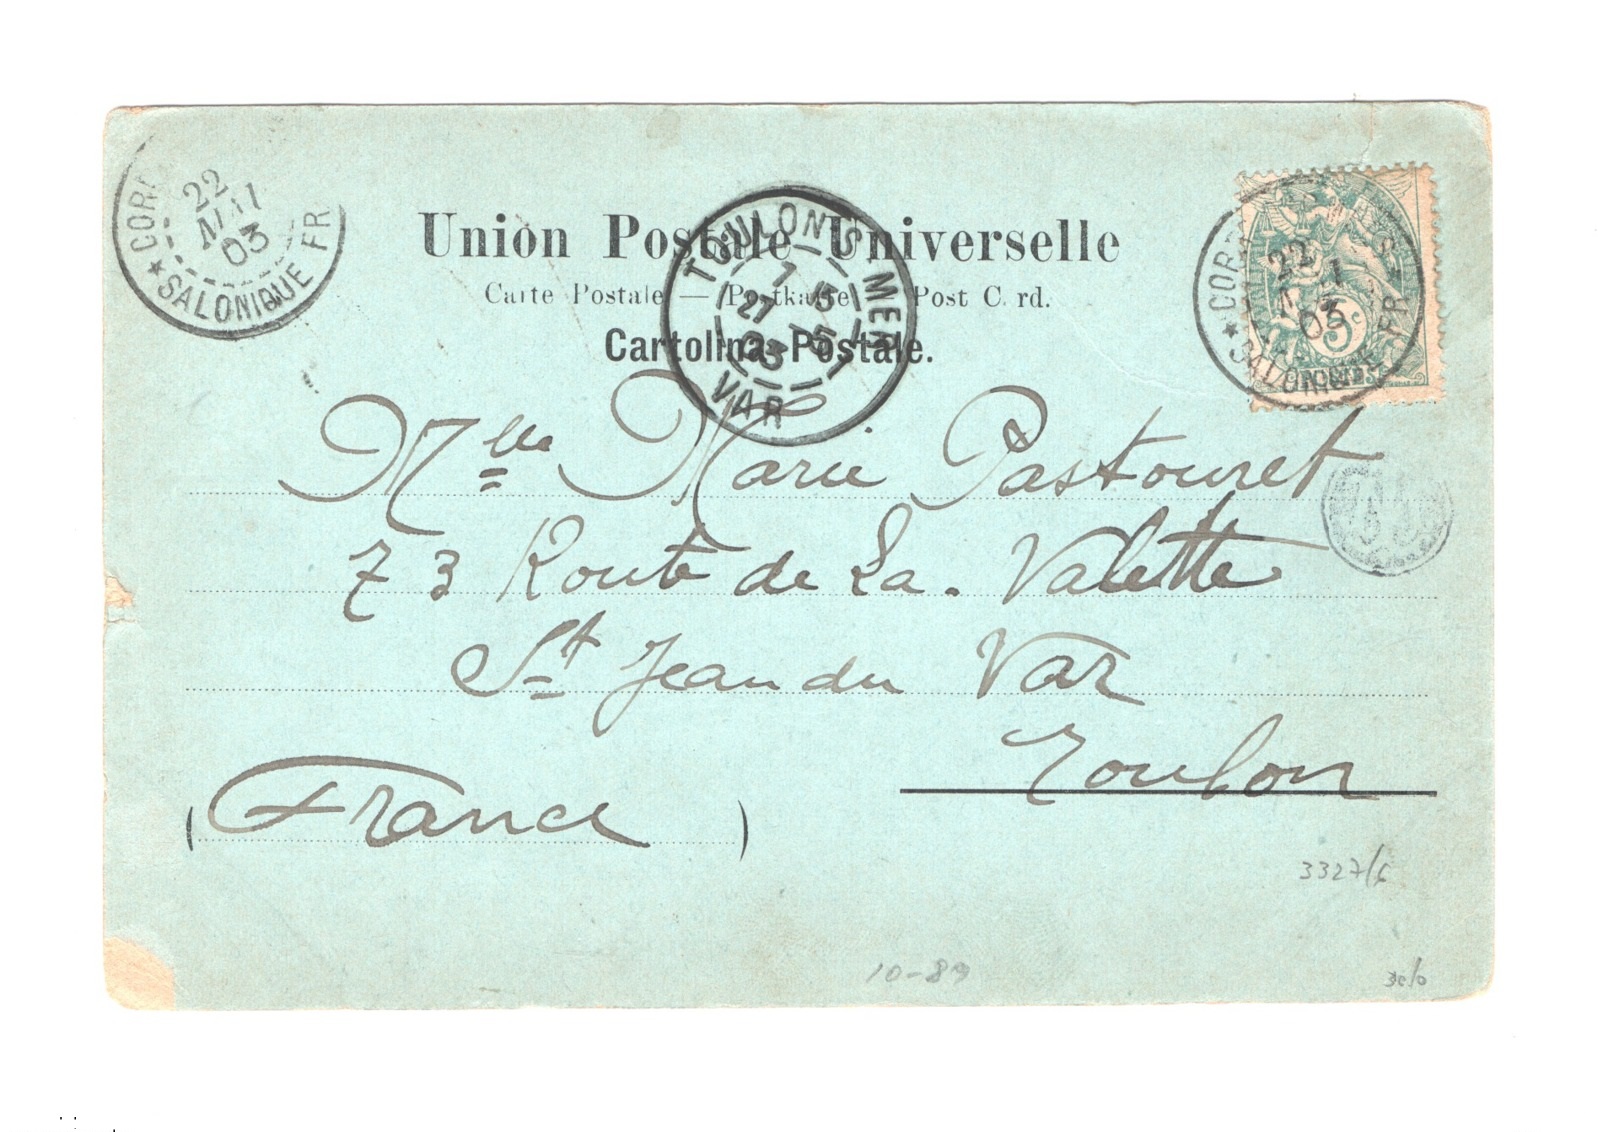 22
MAI
03
★ SALONIQUE FR
Union Postale Universelle
Carte Postale — Postkarte Post Card.
Cartolina Postale.
TOULON S MER
7 15
27 5
03
VAR
22
03
★ SALONIQUE FR
5c
Mlle Marie Pastouret
73 Route de La. Valette
St Jean du Var
Toulon
(France)
3327/6
10-89